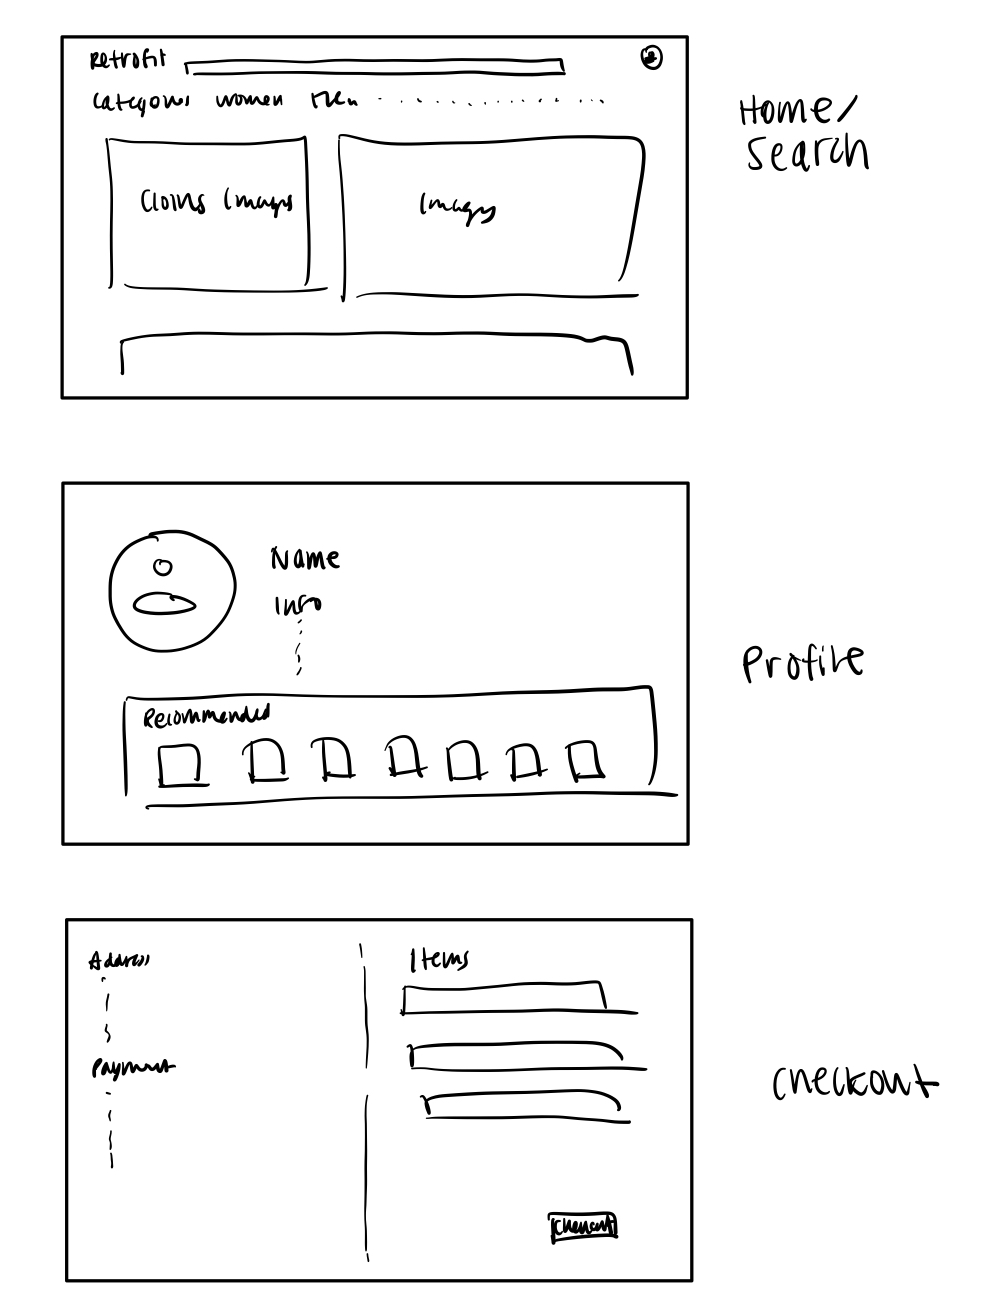 Retrofit
Categories women Men
Cloths Images
Images
Home/
Search
Name
Info
Recommended
Profile
Address
Payment
Items
Checkout
Checkout